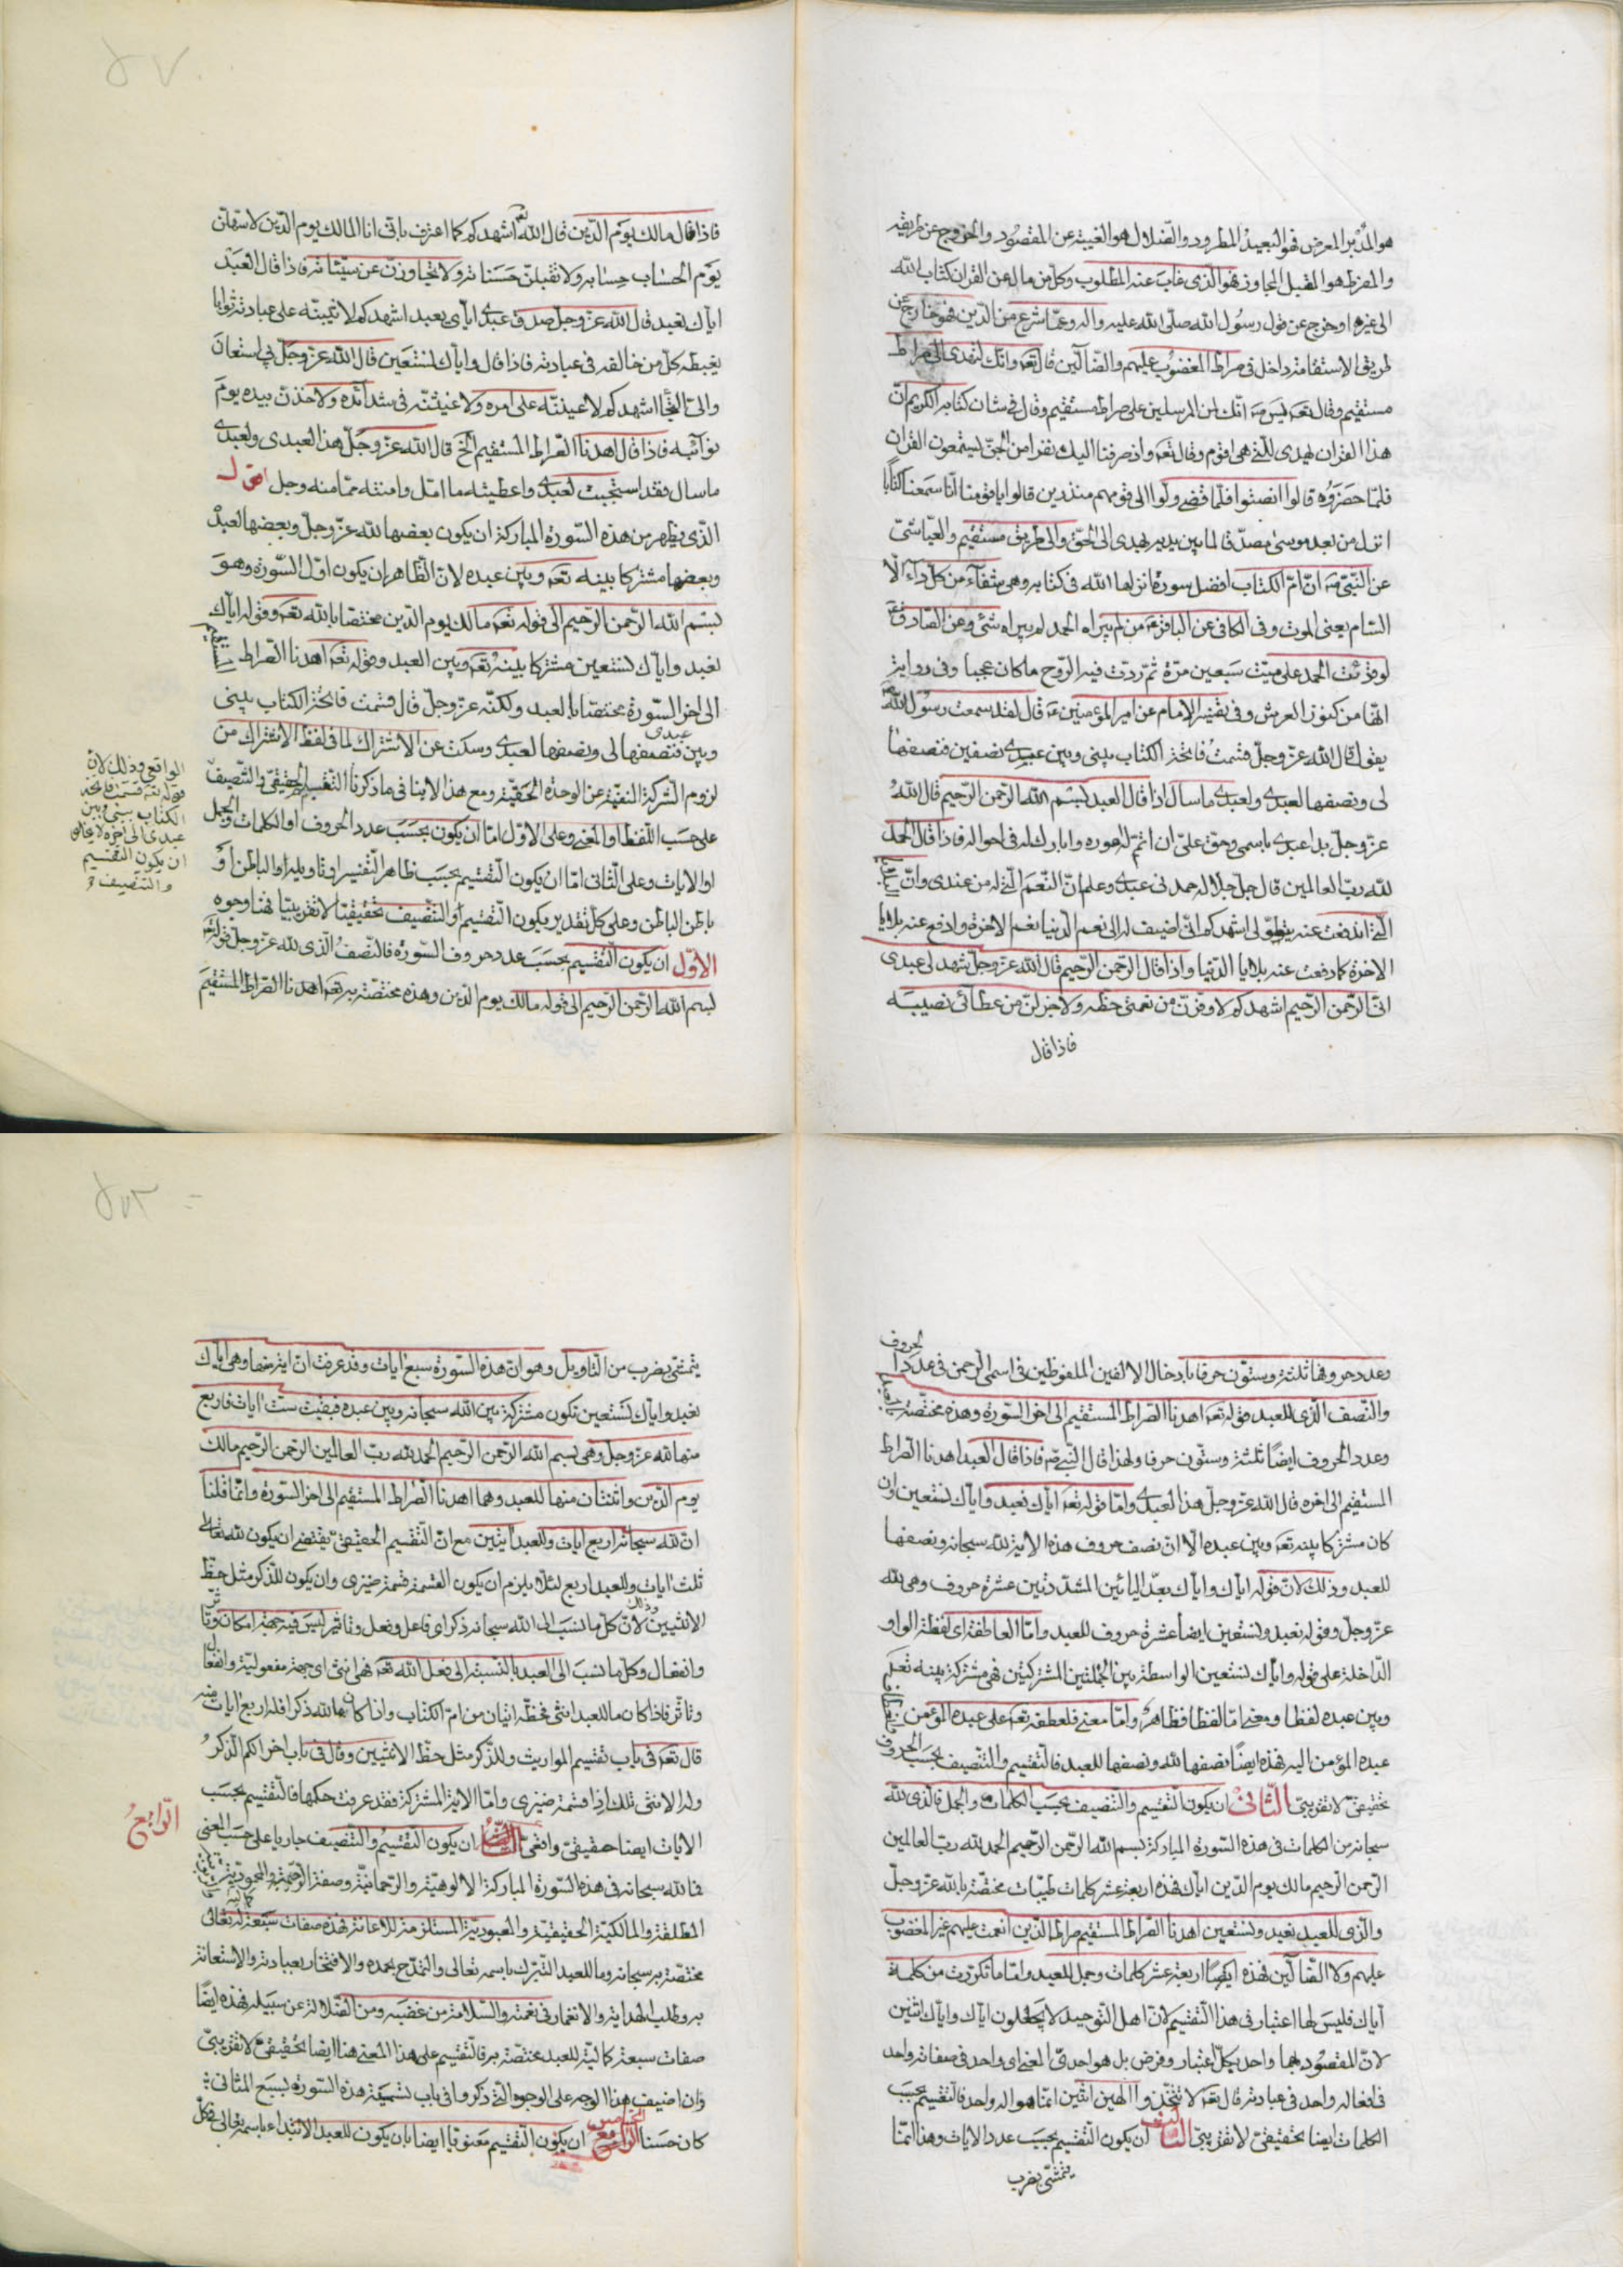 هو المدبر المعرض فهو البعيد المطرود والضلال هو الغيبة عن المقصود والخروج عن طريقه
والمفرط هو المقبل المجاوز فهو الذى غاب عنه المطلوب وكل من مال عن القران كتاب الله
الى غيره او خرج عن قول رسول الله صلى الله عليه واله وعما شرع من الدين فهو خارج عن
طريق الاستقامة داخل فى صراط المغضوب عليهم والضالين قال تعه وانك لتهدى الى صراط
مستقيم وقال تعه يس انك لمن المرسلين على صراط مستقيم وقال فى شان كتابه الكريم ان
هذا القران يهدى للتى هى اقوم وقال تعه واذ صرفنا اليك نفرا من الجن يستمعون القران
فلما حضروه قالوا انصتوا فلما قضى ولوا الى قومهم منذرين قالوا يا قومنا انا سمعنا كتابا
انزل من بعد موسى مصدقا لما بين يديه يهدى الى الحق والى طريق مستقيم والعياشى
عن النبى صه ان ام الكتاب افضل سورة انزلها الله فى كتابه وهى شفاء من كل داء الا
السام يعنى الموت وفى الكافى عن الباقر عه من لم يبراه الحمد لم يبراه شئ وعن الصادق ع
لو قرئت الحمد على ميت سبعين مرة ثم ردت فيه الروح ما كان عجبا وفى رواية
انها من كنوز العرش وفى تفسير الامام عن امير المؤمنين عه قال لقد سمعت رسول الله ص
يقول قال الله عز وجل قسمت فاتحة الكتاب بينى وبين عبدى نصفين فنصفها
لى ونصفها لعبدى ولعبدى ما سال اذا قال العبد بسم الله الرحمن الرحيم قال الله
عز وجل بدا عبدى باسمى وحق على ان اتمم له اموره وابارك له فى احواله فاذا قال الحمد
لله رب العالمين قال جل جلاله حمدنى عبدى وعلم ان النعم التى له من عندى وان
التى اندفعت عنه بتطولى اشهدكم انى اضيف له الى نعم الدنيا نعم الاخرة وادفع عنه بلايا
الاخرة كما دفعت عنه بلايا الدنيا واذا قال الرحمن الرحيم قال الله عز وجل شهد لى عبدى
انى الرحمن الرحيم اشهدكم لاوفرن من نعمتى حظه ولاجزلن من عطائى نصيبه
فاذا قال
فاذا قال مالك يوم الدين قال الله تعه اشهدكم كما اعترف بانى انا المالك يوم الدين لاسهلن
يوم الحساب حسابه ولاتقبلن حسناته ولاتجاوزن عن سيئاته فاذا قال العبد
اياك نعبد قال الله عز وجل صدق عبدى اياى يعبد اشهدكم لاثيبنه على عبادته ثوابا
يغبطه كل من خالفه فى عبادته فاذا قال واياك نستعين قال الله عز وجل بى استعان
والى التجا اشهدكم لاعيننه على امره ولاغيثنه فى شدائده ولاخذن بيده يوم
نوائبه فاذا قال اهدنا الصراط المستقيم الخ قال الله عز وجل هذا لعبدى ولعبدى
ما سال فقد استجبت لعبدى واعطيته ما امل وامنته مما منه وجل اقول
الذى يظهر من هذه السورة المباركة ان يكون بعضها لله عز وجل وبعضها لعبده
وبعضها مشتركا بينه تعه وبين عبده لان الظاهر ان يكون اول السورة وهو
بسم الله الرحمن الرحيم الى قوله تعه مالك يوم الدين مختصا بالله تعه وقوله اياك
نعبد واياك نستعين مشتركا بينه تعه وبين العبد وقوله تعه اهدنا الصراط المستقيم
الى اخر السورة مختصا بالعبد ولكنه عز وجل قال قسمت فاتحة الكتاب بينى
وبين عبدى فنصفها لى ونصفها لعبدى وسكت عن الاشتراك لما فى لفظ الاشتراك من
لزوم الشركة النفية عن الوحدة الحقية ومع هذا لاينافى ما ذكرنا التقسيم الحقيقى والتنصيف
الواقعى وذلك لان
قوله تعه قسمت فاتحة
الكتاب بينى وبين
عبدى الى اخره لا يخلو
ان يكون التقسيم
والتنصيف
على حسب اللفظ او المعنى وعلى الاول اما ان يكون بحسب عدد الحروف او الكلمات والجمل
او الايات وعلى الثانى اما ان يكون التقسيم بحسب ظاهر التفسير او تاويله او الباطن او
باطن الباطن وعلى كل تقدير يكون التقسيم او التنصيف تحقيقيا لا تقريبيا فهنا وجوه
الاول ان يكون التقسيم بحسب عدد حروف السورة فالنصف الذى لله عز وجل قوله تعه
بسم الله الرحمن الرحيم الى قوله مالك يوم الدين وهذه مختصة به تعه اهدنا الصراط المستقيم
وعدد حروفها ثلثة وستون حرفا بادخال الالفين الملفوظين فى اسمى الرحمن فى عدد الحروف
والنصف الذى للعبد قوله تعه اهدنا الصراط المستقيم الى اخر السورة وهذه مختصة
وعدد الحروف ايضا ثلثة وستون حرفا ولهذا قال النبى صه فاذا قال العبد اهدنا الصراط
المستقيم الى اخره قال الله عز وجل هذا لعبدى واما قوله تعه اياك نعبد واياك نستعين وان
كان مشتركا بينه تعه وبين عبده الا ان نصف حروف هذه الاية لله سبحانه ونصفها
للعبد وذلك لان قوله اياك واياك بعد اليائين المشددتين عشرة حروف وهى لله
عز وجل وقوله نعبد ونستعين ايضا عشرة حروف للعبد واما العاطفة اى لفظة الواو
الداخلة على قوله واياك نستعين الواسطة بين الجملتين المشتركتين فهى مشتركة بينه تعه
وبين عبده لفظا ومعنى اما لفظا فظاهر واما معنى فلعطفه تعه على عبده المؤمن
عبده المؤمن اليه فهذه ايضا نصفها لله ونصفها للعبد فالتقسيم والتنصيف بحسب الحروف
تحقيقى لا تقريبى الثانى ان يكون التقسيم والتنصيف بحسب الكلمات والجمل فالذى لله
سبحانه من الكلمات فى هذه السورة المباركة بسم الله الرحمن الرحيم الحمد لله رب العالمين
الرحمن الرحيم مالك يوم الدين اياك فهذه اربعة عشر كلمات طيبات مختصة بالله عز وجل
والذى للعبد نعبد ونستعين اهدنا الصراط المستقيم صراط الذين انعمت عليهم غير المغضوب
عليهم ولا الضالين فهذه ايضا اربعة عشر كلمات وجمل للعبد واما ما تكررت من كلمة
اياك فليس لها اعتبار فى هذا التقسيم لان اهل التوحيد لا يجعلون اياك واياك اثنين
لان المقصود بهما واحد بكل اعتبار وفرض بل هو احدى المعنى اى واحد فى صفاته واحد
فى افعاله واحد فى عبادته قال تعه لا تتخذوا الهين اثنين انما هو اله واحد فالتقسيم بحسب
الكلمات ايضا تحقيقى لا تقريبى الثالث ان يكون التقسيم بحسب عدد الايات وهذا انما
يتمشى بضرب
يتمشى بضرب من التاويل وهو ان هذه السورة سبع ايات وقد عرفت ان اية منها وهى اياك
نعبد واياك نستعين تكون مشتركة بين الله سبحانه وبين عبده فبقيت ست ايات فاربع
منها لله عز وجل وهى بسم الله الرحمن الرحيم الحمد لله رب العالمين الرحمن الرحيم مالك
يوم الدين واثنتان منها للعبد وهما اهدنا الصراط المستقيم الى اخر السورة وانما قلنا
ان لله سبحانه اربع ايات وللعبد ايتين مع ان التقسيم الحقيقى يقتضى ان يكون لله تعالى
ثلث ايات وللعبد اربع لئلا يلزم ان يكون القسمة قسمة ضيزى وان يكون للذكر مثل حظ
الانثيين وذلك لان كل ما نسب الى الله سبحانه ذكر اى فاعل وفعل وتاثير ليس فيه جهة امكان وتاثر
وانفعال وكل ما نسب الى العبد بالنسبة الى فعل الله تعه فهى انثى اى جهة مفعولية وانفعال
وتاثر فاذا كان ما للعبد انثى فحظه ايتان من ام الكتاب واذا كان ما لله ذكرا فله اربع ايات منه
قال تعه فى باب تقسيم المواريث وللذكر مثل حظ الانثيين وقال فى باب اخر الكم الذكر
وله الانثى تلك اذا قسمة ضيزى واما الاية المشتركة فقد عرفت حكمها فالتقسيم بحسب
الايات ايضا حقيقى واقعى ان يكون التقسيم والتنصيف جاريا على حسب المعنى
الرابع
فالله سبحانه فى هذه السورة المباركة الالوهية والرحمانية وصفة الرحيمية والمحمودية
المطلقة والمالكية الحقيقية والمعبودية المستلزمة للاعانة فهذه صفات سبعة له تعالى
مختصة به سبحانه وما للعبد التبرك باسمه تعالى والتمدح بحمده والافتخار بعبادته والاستعانة
به وطلب الهداية والانغمار فى نعمته والسلامة من غضبه ومن الضلالة عن سبيله فهذه ايضا
صفات سبعة كمالية للعبد مختصة به فالتقسيم على هذا المعنى هنا ايضا تحقيقى لا تقريبى
وان اضيف هذا الوجه على الوجوه التى ذكروا فى باب تسمية هذه السورة بسبع المثانى
كان حسنا الخامس ان يكون التقسيم معنويا ايضا بان يكون للعبد الابتداء باسمه تعالى فى كل